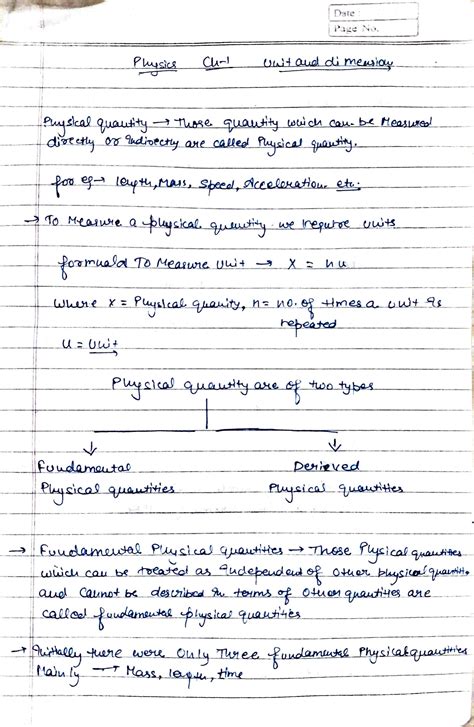 Date
Page No.
Physics Ch-1 Unit and dimension
Physical quantity → Those quantity which can be Measured
directly or Indirectly are called Physical quantity.
for eg → length, Mass, Speed, Acceleration etc.
→ To Measure a physical quantity we require units
formuala To Measure Unit → X = nu
where x = Physical quanity, n = no. of times a unit is
repeated
u = unit
Physical quantity are of two types
Fundamental Derieved
Physical quantities Physical quantities
→ Fundamental Physical quantities → Those Physical quantities
which can be treated as Independent of other physical quantiti
and Cannot be described in terms of other quantities are
called fundamental physical quantities
→ Initially there were Only Three fundamental Physical quantities
Mainly → Mass, length, time